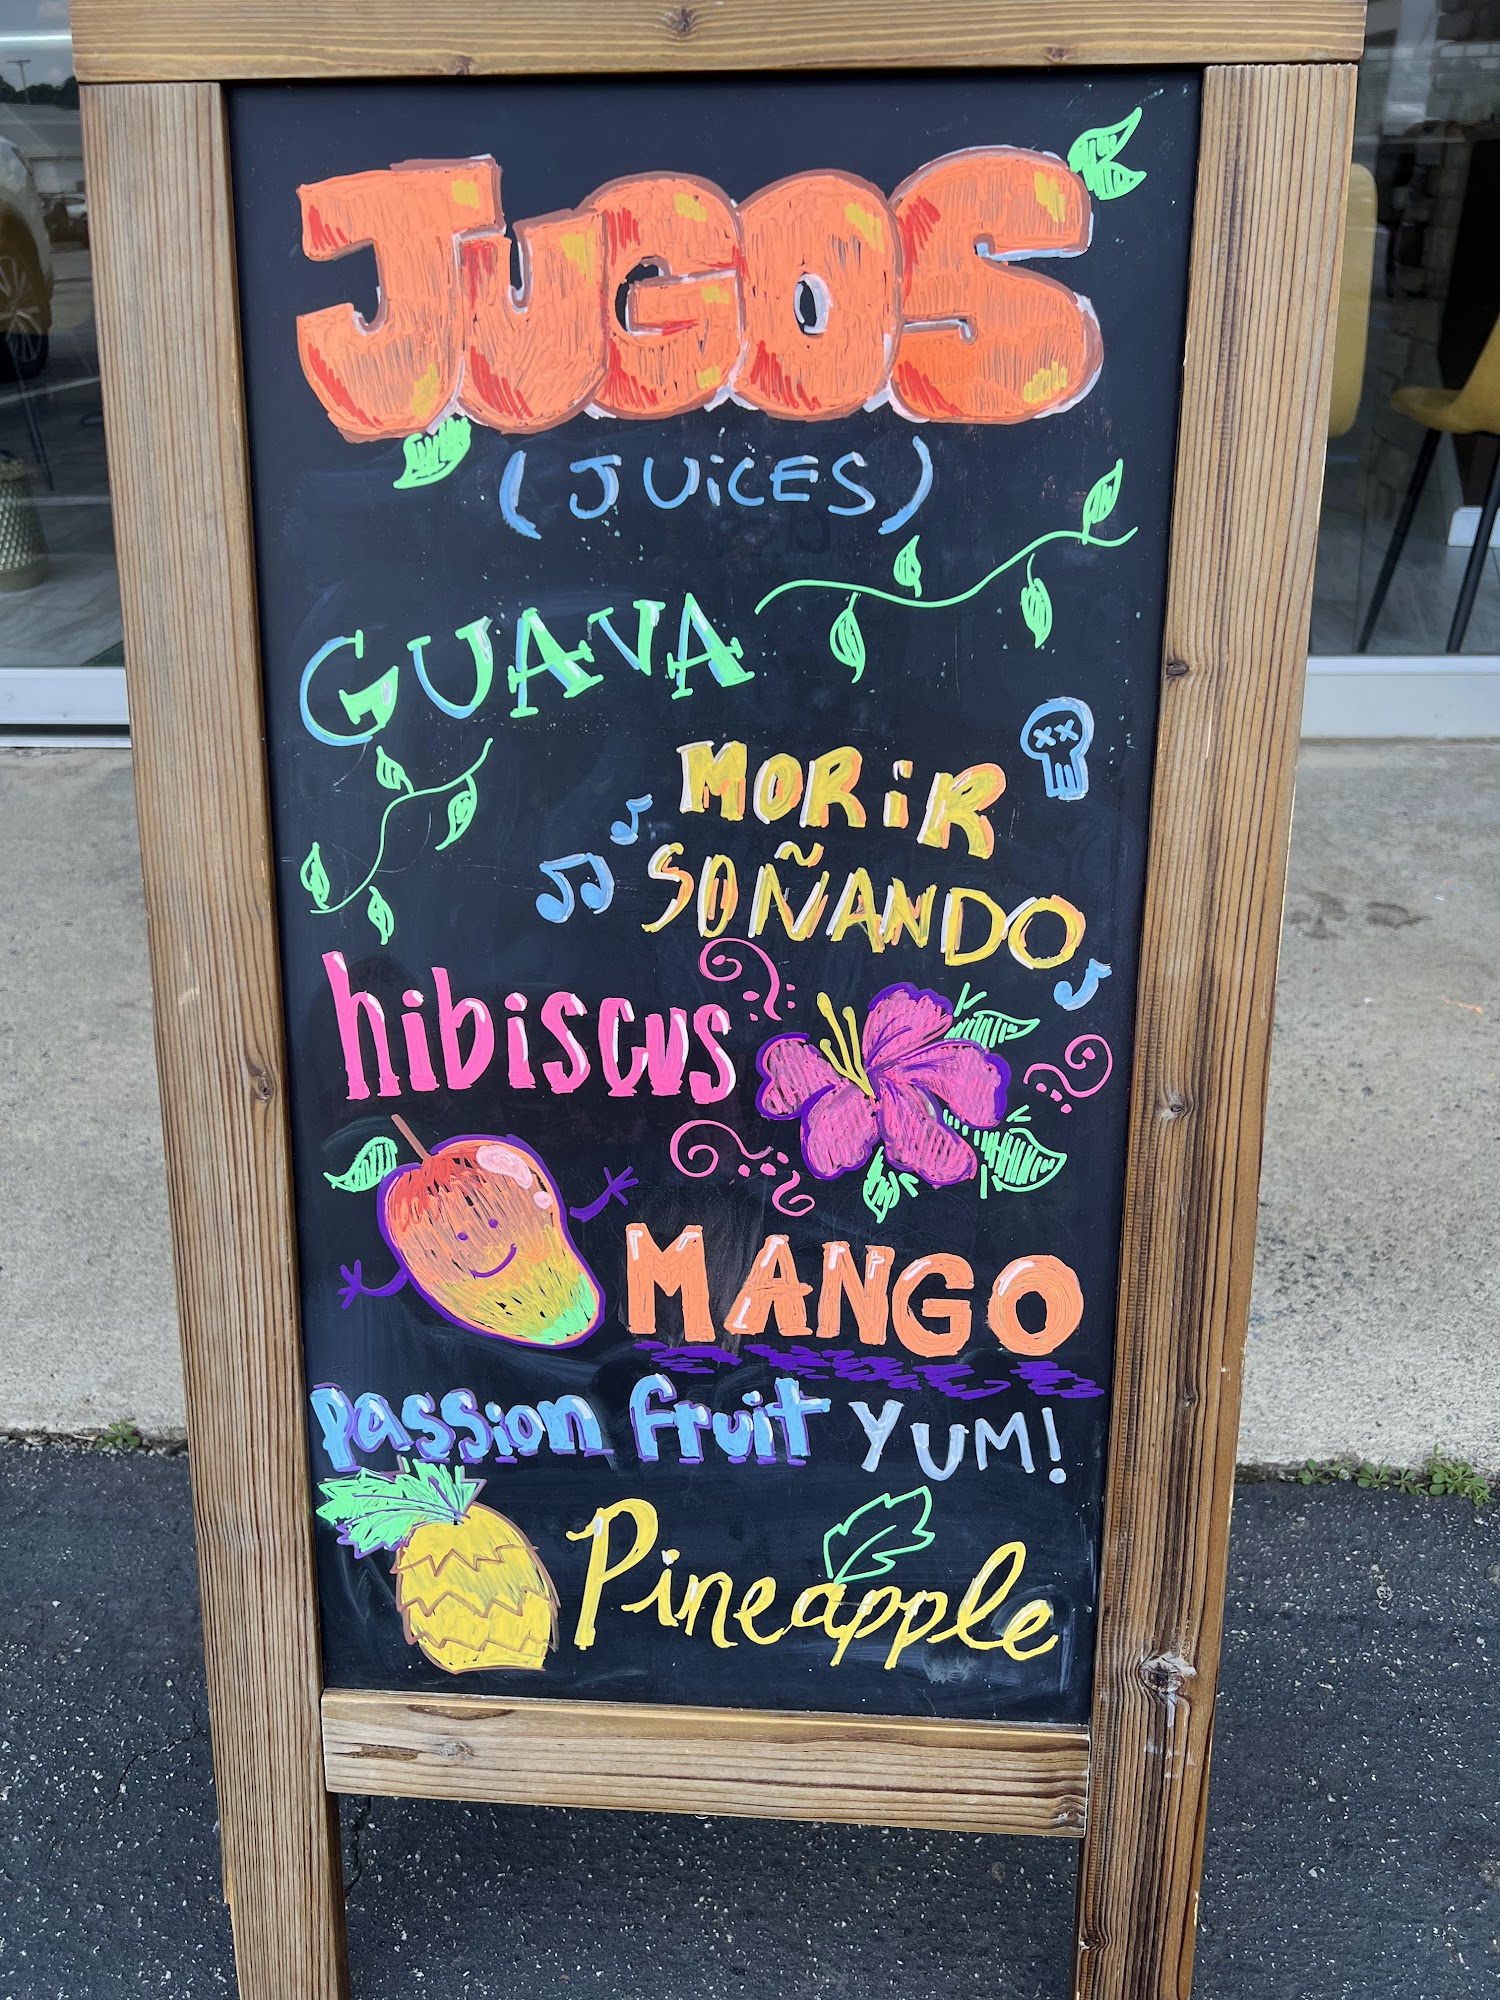 JUGOS
(JUiCES)
GUAVA
MORiR
SOÑANDO
hibiscus
MANGO
Passion fruit YUM!
Pineapple